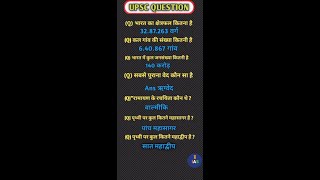 UPSC QUESTION
(Q) भारत का क्षेत्रफल कितना है
32.87.263 वर्ग
(Q) कुल गांव की संख्या कितनी है
6.40.867 गांव
(Q) भारत में कुल जनसंख्या कितनी है
140 करोड़
(Q) सबसे पुराना वेद कौन सा है
Ans ऋग्वेद
(Q)"रामायण के रचयिता कौन थे ?
वाल्मीकि
(Q) पृथ्वी पर कुल कितने महासागर है ?
पांच महासागर
(Q) पृथ्वी पर कुल कितने महाद्वीप है ?
सात महाद्वीप